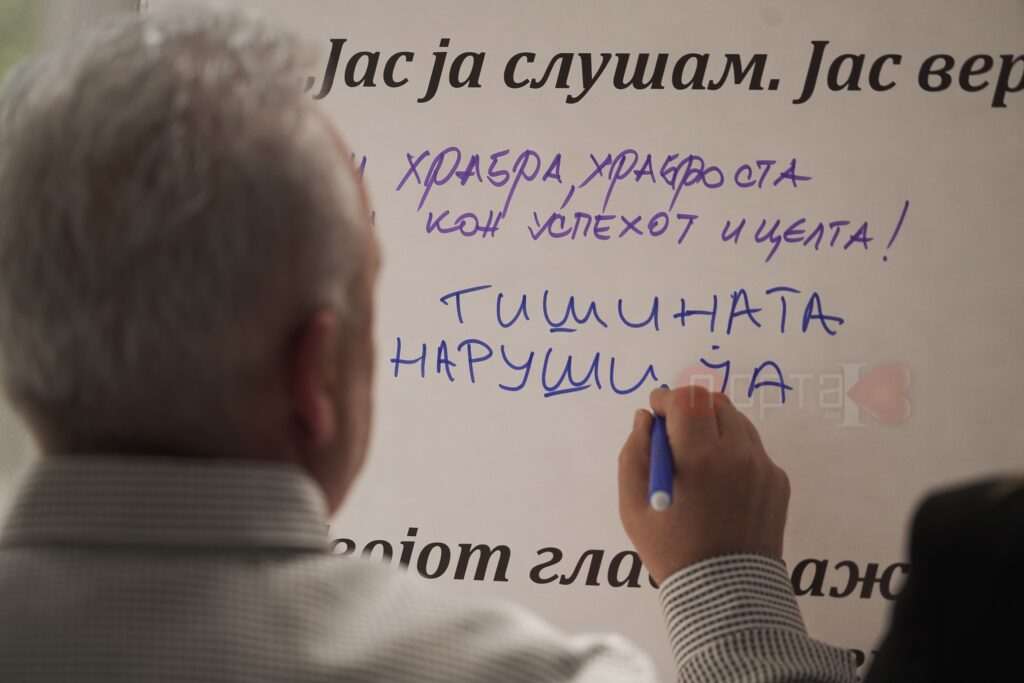 „Јас ја слушам. Јас вер
и ХРАБРА, ХРАБРОСТА
КОН УСПЕХОТ И ЦЕЛТА!
ТИШИНАТА
НАРУШИ ЈА
ПОРТАЛ
МК
војот глас важ